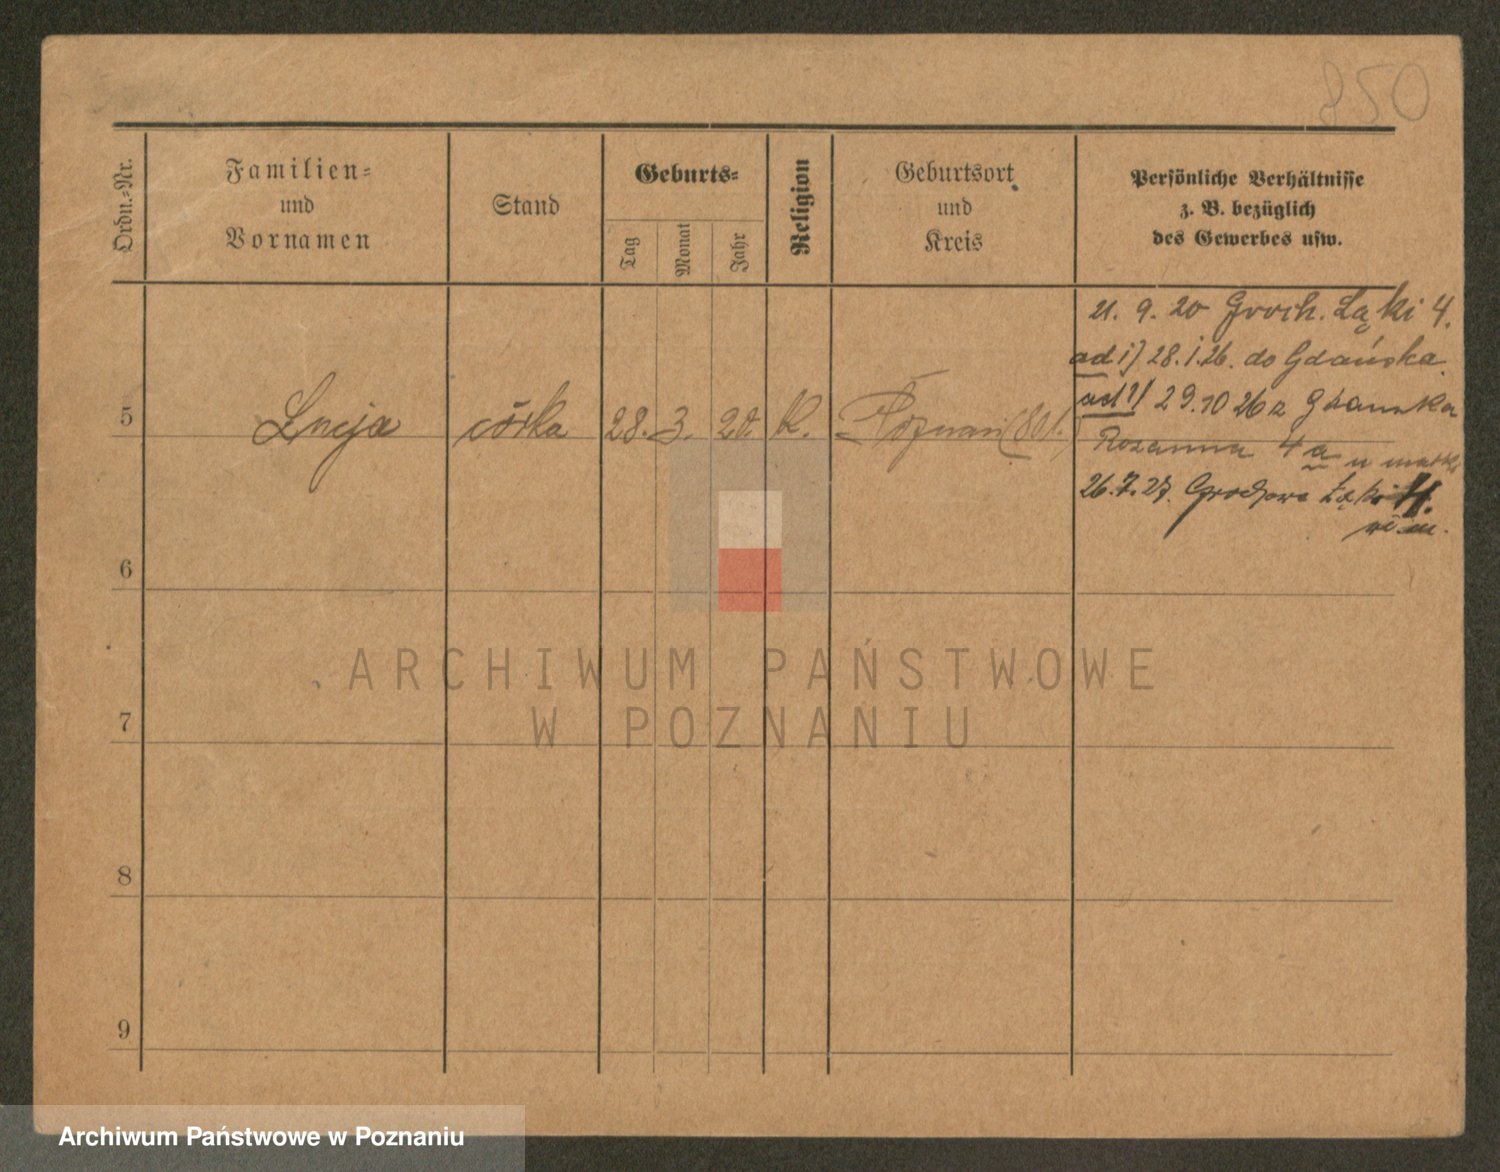 850
Ordn.-Nr.
Familien-
und
Vornamen
Stand
Geburts-
Tag
Monat
Jahr
Religion
Geburtsort
und
Kreis
Persönliche Verhältnisse
z. B. bezüglich
des Gewerbes usw.
21. 9. 20 Groch. Łąki 4.
ad 1) 28.1.26. do Gdańska.
ad 1) 29.10 26 z Gdańska
5 Łucja córka 28. 3. 20. K. Poznań
4a u matki
26.7.27. Grochowe Łąki 4.
6
7
8
9
ARCHIWUM PAŃSTWOWE
W POZNANIU
Archiwum Państwowe w Poznaniu